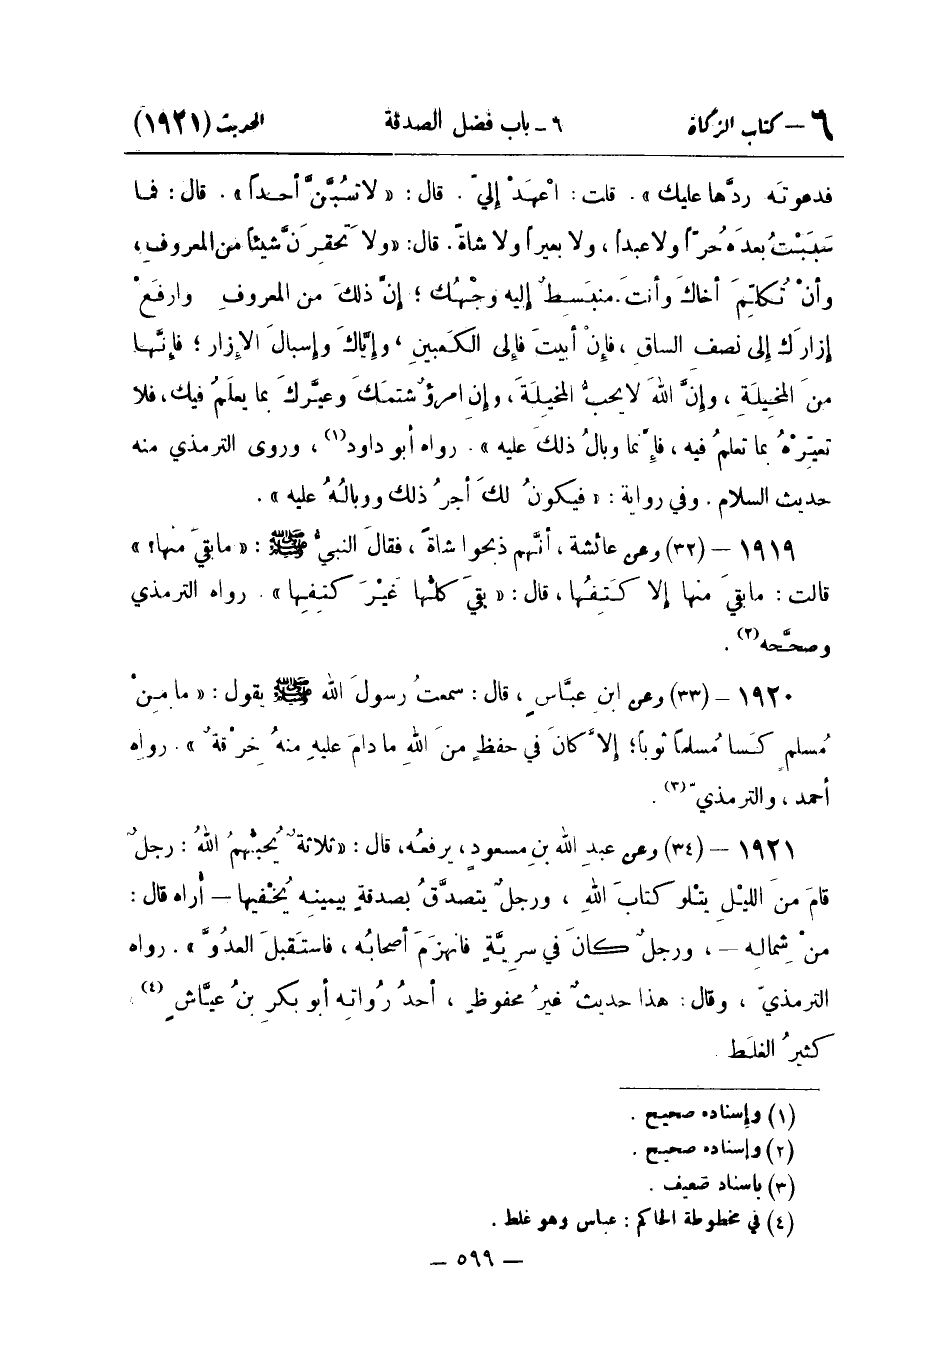 ٦ – كتاب الزكاة ٦ ـ باب فضل الصدقة الحديث (١٩٢١)
فدعوتَه ردَّها عليك » . قلت : اعْهَدْ إِليّ . قال : « لاتسُبَّنَّ أحداً » . قال : فما
سَبَبْتُ بعدَه حُرّاً ولا عبداً ، ولا بعيراً ولا شاةً . قال : « ولا تَحقِرَنَّ شيئاً من المعروفِ ،
وأنْ تُكلِّمَ أخاكَ وأنتَ منبسِطٌ إليه وجْهُك ؛ إنَّ ذلكَ من المعروفِ وارفَعْ
إزارَك إلى نصفِ الساقِ ، فإنْ أبيتَ فإلى الكعبينِ ، وإيَّاكَ وإسبالَ الإزارِ ؛ فإنَّها
منَ المخيلَةِ ، وإنَّ اللهَ لايحبُّ المخيلةَ ، وإن امرؤٌ شتمكَ وعيَّركَ بما يعلَمُ فيك ، فلا
تعيّرْهُ بما تعلمُ فيه ، فإنَّما وبالُ ذلكَ عليه » . رواه أبو داود(١) ، وروى الترمذي منه
حديث السلام . وفي رواية : « فيكونُ لكَ أجرُ ذلك ووبالُهُ عليه » .
١٩١٩ – (٣٢) وعن عائشة ، أنَّهم ذبحوا شاةً ، فقالَ النبيُّ ﷺ : « مابقيَ منها؟ »
قالت : مابقيَ منها إلا كَتِفُها ، قال : « بقيَ كلُّها غيْرَ كتِفِها » . رواه الترمذي
وصححَّه(٢) .
١٩٢٠ – (٣٣) وعن ابنِ عبَّاسٍ ، قال : سمعتُ رسولَ اللهِ ﷺ يقول : « مامِنْ
مُسلمٍ كَسا مُسلماً ثوباً ؛ إلاَّ كانَ في حفظٍ منَ اللهِ مادامَ عليهِ منهُ خِرْقةٌ » . رواه
أحمد ، والترمذيّ(٣) .
١٩٢١ – (٣٤) وعن عبدِ اللهِ بنِ مسعودٍ ، يرفعُه ، قال : « ثلاثةٌ يُحبُّهمُ اللهُ : رجلٌ
قامَ منَ الليْلِ يتْلو كتابَ اللهِ ، ورجلٌ يتصدَّقُ بصدقةٍ بيمينِه يُخْفيها – أُراه قال :
منْ شِمالِه – ، ورجلٌ كانَ في سريَّةٍ فانهزَمَ أصحابُه ، فاستقبلَ العدُوَّ » . رواه
الترمذيّ ، وقال : هذا حديثٌ غيرُ محفوظٍ ، أحدُ رُواتِه أبو بكرِ بنُ عيَّاشٍ(٤) .
كثيرُ الغلَط
(١) وإسناده صحيح .
(٢) وإسناده صحيح .
(٣) بإسناد ضعيف .
(٤) في مخطوطة الحاكم : عباس وهو غلط .
– ٥٩٩ –